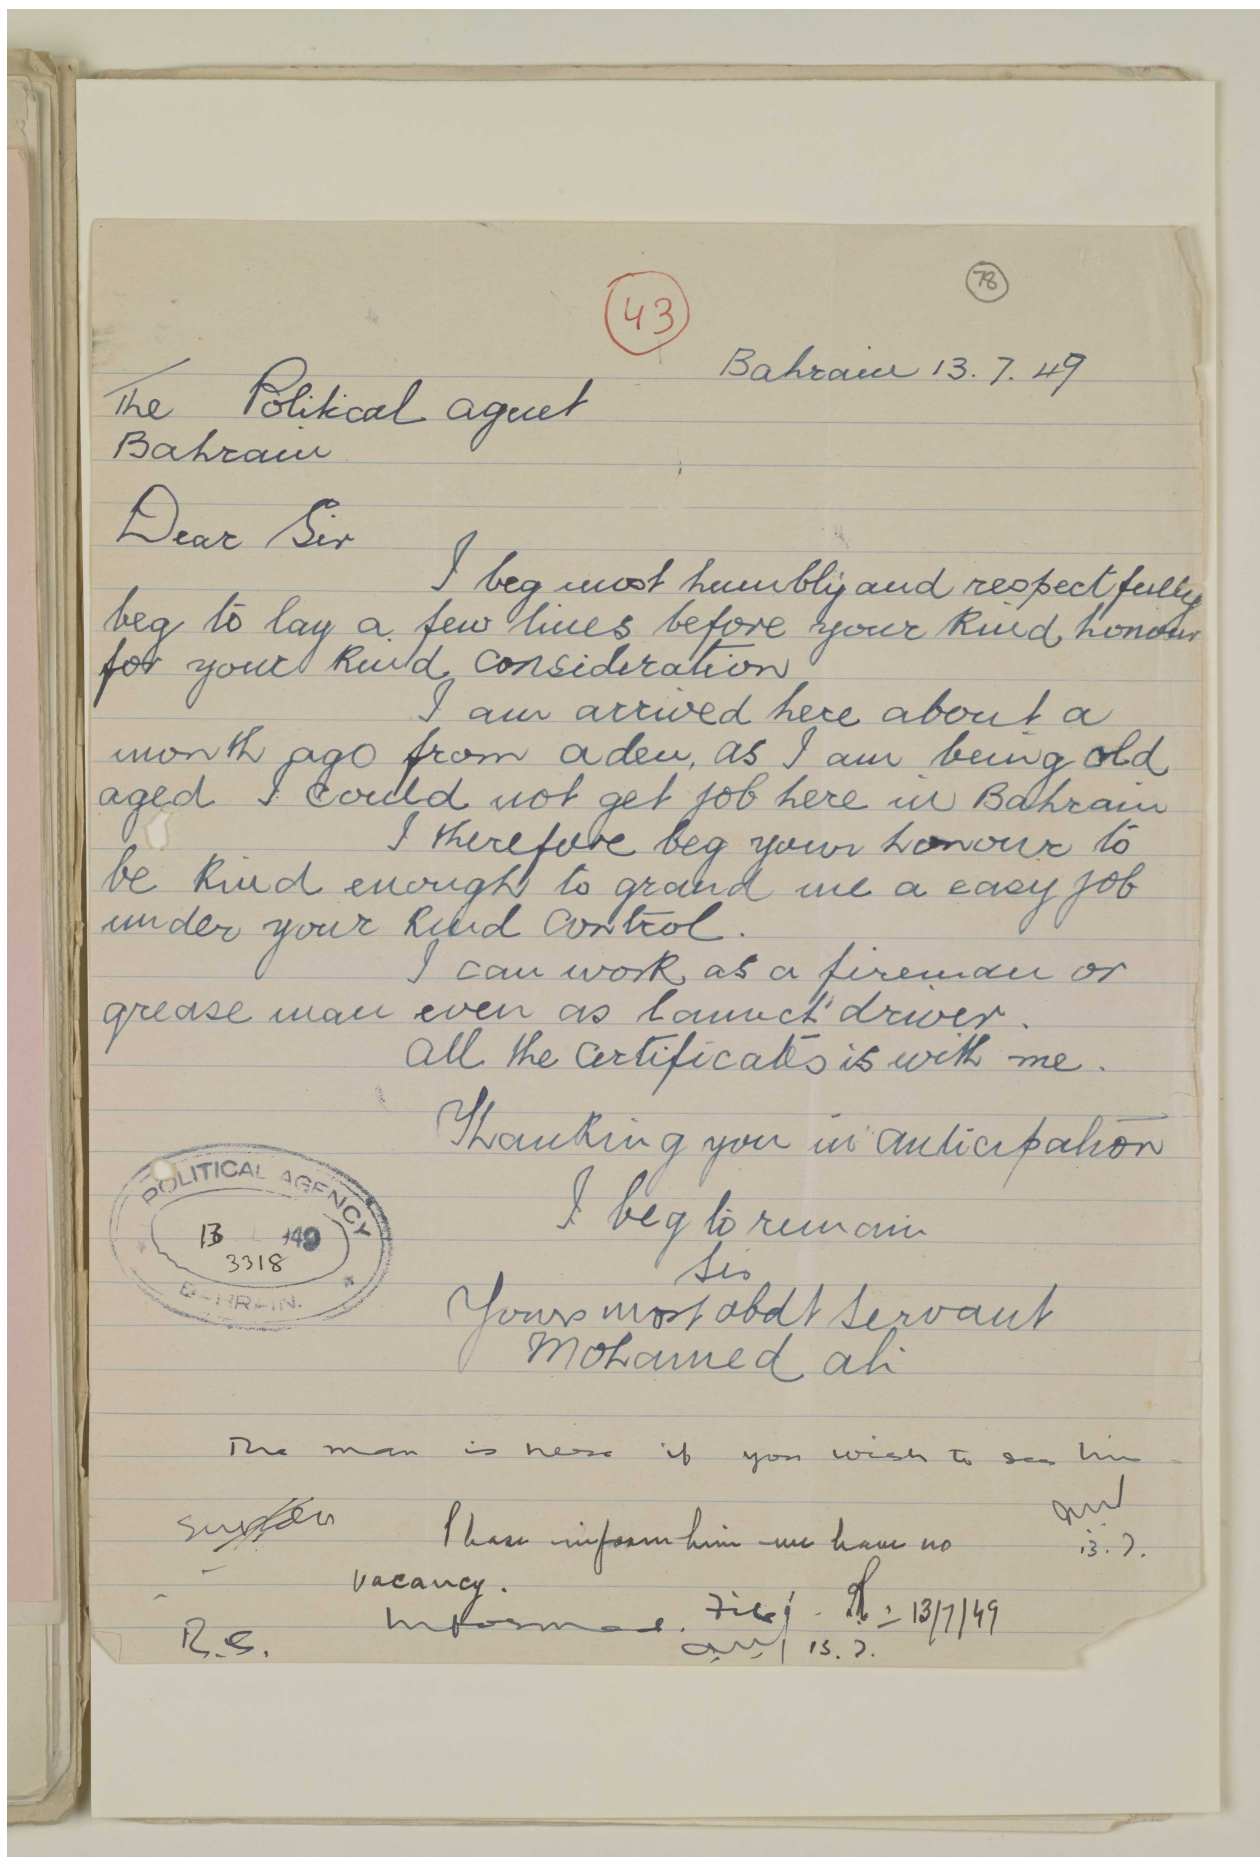 43
78
Bahrain 13.7.49
The Political agent
Bahrain
Dear Sir
I beg most humbly and respectfully
beg to lay a few lines before your kind honour
for your kind consideration
I am arrived here about a
month ago from aden, as I am being old
aged I could not get job here in Bahrain
I therefore beg your honour to
be kind enough to grand me a easy job
under your kind control.
I can work as a fireman or
grease man even as launch driver.
all the certificates is with me.
Thanking you in anticipation
I beg to remain
Sir
Yours most obdt servant
Mohamed ali
POLITICAL AGENCY
13 949
3318
BAHRAIN.
The man is here if you wish to see him
13.7.
Please inform him we have no
vacancy.
Informed. File 13/7/49
R.S.
13.7.